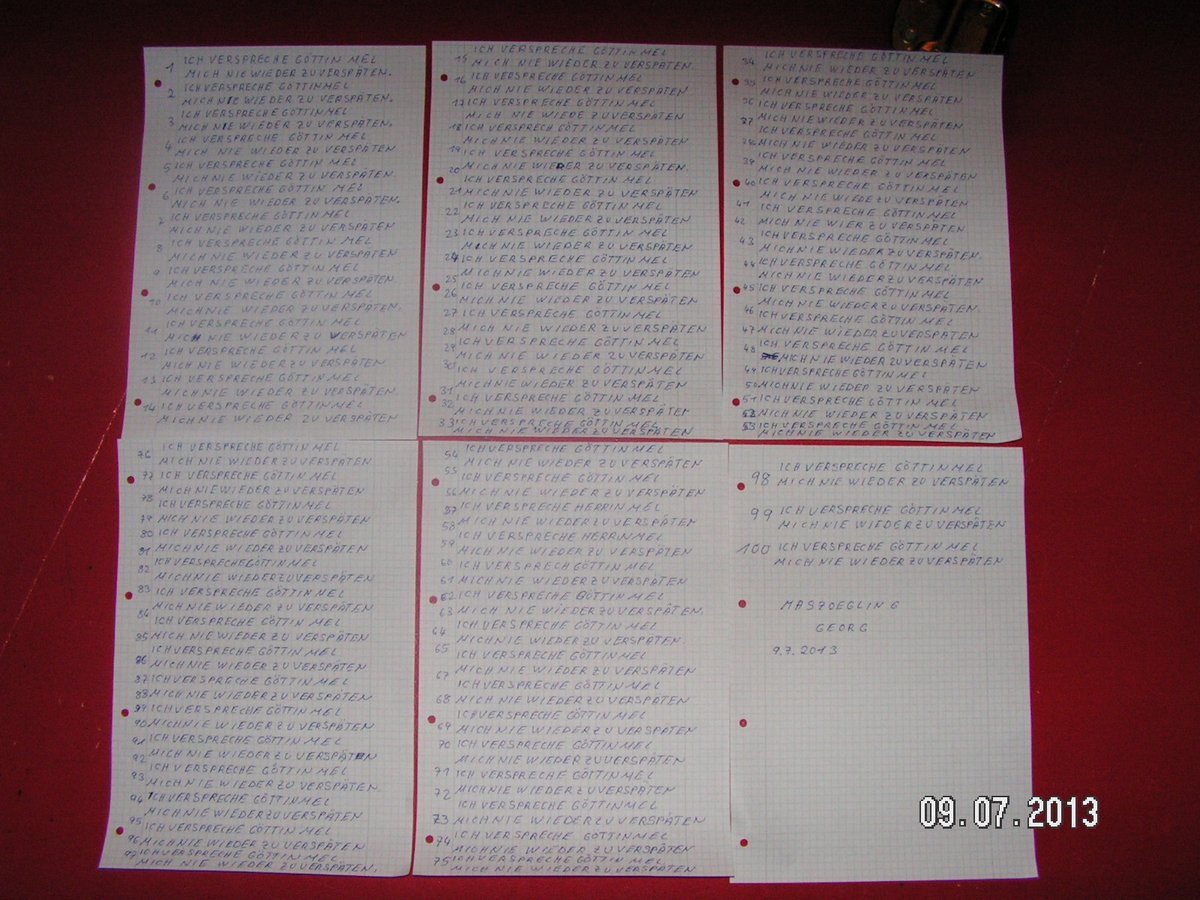 1 ICH VERSPRECHE GÖTTIN MEL
MICH NIE WIEDER ZU VERSPÄTEN.
2 ICH VERSPRECHE GÖTTIN MEL
MICH NIE WIEDER ZU VERSPÄTEN.
3 ICH VERSPRECHE GÖTTIN MEL
MICH NIE WIEDER ZU VERSPÄTEN.
4 ICH VERSPRECHE GÖTTIN MEL
MICH NIE WIEDER ZU VERSPÄTEN
5 ICH VERSPRECHE GÖTTIN MEL
MICH NIE WIEDER ZU VERSPÄTEN.
6 ICH VERSPRECHE GÖTTIN MEL
MICH NIE WIEDER ZU VERSPÄTEN.
7 ICH VERSPRECHE GÖTTIN MEL
MICH NIE WIEDER ZU VERSPÄTEN
8 ICH VERSPRECHE GÖTTIN MEL
MICH NIE WIEDER ZU VERSPÄTEN.
9 ICH VERSPRECHE GÖTTIN MEL
MICH NIE WIEDER ZU VERSPÄTEN.
10 ICH VERSPRECHE GÖTTIN MEL
MICH NIE WIEDER ZU VERSPÄTEN.
11 ICH VERSPRECHE GÖTTIN MEL
MICH NIE WIEDER ZU VERSPÄTEN
12 ICH VERSPRECHE GÖTTIN MEL
MICH NIE WIEDER ZU VERSPÄTEN
13 ICH VERSPRECHE GÖTTIN MEL
MICH NIE WIEDER ZU VERSPÄTEN.
14 ICH VERSPRECHE GÖTTIN MEL
MICH NIE WIEDER ZU VERSPÄTEN
ICH VERSPRECHE GÖTTIN MEL
15 MICH NIE WIEDER ZU VERSPÄTEN.
16 ICH VERSPRECHE GÖTTIN MEL
MICH NIE WIEDER ZU VERSPÄTEN
17 ICH VERSPRECHE GÖTTIN MEL
MICH NIE WIEDE ZU VERSPÄTEN
18 ICH VERSPRECH GÖTTIN MEL
MICH NIE WIEDER ZU VERSPÄTEN
19 ICH VERSPRECHE GÖTTIN MEL
20 MICH NIE WIEDER ZU VERSPÄTEN.
ICH VERSPRECHE GÖTTIN MEL
21 MICH NIE WIEDER ZU VERSPÄTEN
ICH VERSPRECHE GÖTTIN MEL
22 MICH NIE WIEDER ZU VERSPÄTEN
23 ICH VERSPRECHE GÖTTIN MEL
MICH NIE WIEDER ZU VERSPÄTEN
24 ICH VERSPRECHE GÖTTIN MEL
MICH NIE WIEDER ZU VERSPÄTEN
25 ICH VERSPRECHE GÖTTIN MEL
26 MICH NIE WIEDER ZU VERSPÄTEN
27 ICH VERSPRECHE GÖTTIN MEL
28 MICH NIE WIEDER ZU VERSPÄTEN
29 ICH VERSPRECHE GÖTTIN MEL
MICH NIE WIEDER ZU VERSPÄTEN
30 ICH VERSPRECHE GÖTTIN MEL
MICH NIE WIEDER ZU VERSPÄTEN
31 ICH VERSPRECHE GÖTTIN MEL
32 MICH NIE WIEDER ZU VERSPÄTEN
33 ICH VERSPRECHE GÖTTIN MEL
MICH NIE WIEDER ZU VERSPÄTEN
34 ICH VERSPRECHE GÖTTIN MEL
MICH NIE WIEDER ZU VERSPÄTEN
35 ICH VERSPRECHE GÖTTIN MEL
MICH NIE WIEDER ZU VERSPÄTEN
36 ICH VERSPRECHE GÖTTIN MEL
37 MICH NIE WIEDER ZU VERSPÄTEN
ICH VERSPRECHE GÖTTIN MEL
38 MICH NIE WIEDER ZU VERSPÄTEN
39 ICH VERSPRECHE GÖTTIN MEL
MICH NIE WIEDER ZU VERSPÄTEN
40 ICH VERSPRECHE GÖTTIN MEL
MICH NIE WIEDER ZU VERSPÄTEN
41 ICH VERSPRECHE GÖTTIN MEL
42 MICH NIE WIER ZU VERSPÄTEN
43 ICH VERSPRECHE GÖTTIN MEL
MICH NIE WIEDER ZU VERSPÄTEN.
44 ICH VERSPRECHE GÖTTIN MEL
MICH NIE WIEDER ZU VERSPÄTEN
45 ICH VERSPRECHE GÖTTIN MEL
MICH NIE WIEDER ZU VERSPÄTEN.
46 ICH VERSPRECHE GÖTTIN MEL
47 MICH NIE WIEDER ZU VERSPÄTEN
48 ICH VERSPRECHE GÖTTIN MEL
MICH NIE WIEDER ZU VERSPÄTEN
49 ICH VERSPRECHE GÖTTIN MEL
50 MICH NIE WIEDER ZU VERSPÄTEN
51 ICH VERSPRECHE GÖTTIN MEL
52 MICH NIE WIEDER ZU VERSPÄTEN
53 ICH VERSPRECHE GÖTTIN MEL
MICH NIE WIEDER ZU VERSPÄTEN
ICH VERSPRECHE GÖTTIN MEL
76 MICH NIE WIEDER ZU VERSPÄTEN
77 ICH VERSPRECHE GÖTTIN MEL
MICH NIE WIEDER ZU VERSPÄTEN
78 ICH VERSPRECHE GÖTTIN MEL
79 MICH NIE WIEDER ZU VERSPÄTEN
80 ICH VERSPRECHE GÖTTIN MEL
81 MICH NIE WIEDER ZU VERSPÄTEN
ICH VERSPRECHE GÖTTIN MEL
82 MICH NIE WIEDER ZU VERSPÄTEN
83 ICH VERSPRECHE GÖTTIN MEL
MICH NIE WIEDER ZU VERSPÄTEN
84 ICH VERSPRECHE GÖTTIN MEL
85 MICH NIE WIEDER ZU VERSPÄTEN
ICH VERSPRECHE GÖTTIN MEL
86 MICH NIE WIEDER ZU VERSPÄTEN
87 ICH VERSPRECHE GÖTTIN MEL
88 MICH NIE WIEDER ZU VERSPÄTEN
89 ICH VERSPRECHE GÖTTIN MEL
90 MICH NIE WIEDER ZU VERSPÄTEN
91 ICH VERSPRECHE GÖTTIN MEL
92 MICH NIE WIEDER ZU VERSPÄTEN
ICH VERSPRECHE GÖTTIN MEL
93 MICH NIE WIEDER ZU VERSPÄTEN.
94 ICH VERSPRECHE GÖTTIN MEL
MICH NIE WIEDER ZU VERSPÄTEN
95 ICH VERSPRECHE GÖTTIN MEL
96 MICH NIE WIEDER ZU VERSPÄTEN
97 ICH VERSPRECHE GÖTTIN MEL
MICH NIE WIEDER ZU VERSPÄTEN.
54 ICH VERSPRECHE GÖTTIN MEL
MICH NIE WIEDER ZU VERSPÄTEN
55 ICH VERSPRECHE GÖTTIN MEL
56 MICH NIE WIEDER ZU VERSPÄTEN
57 ICH VERSPRECHE HERRIN MEL
58 MICH NIE WIEDER ZU VERSPÄTEN
ICH VERSPRECHE HERRIN MEL
59 MICH NIE WIEDER ZU VERSPÄTEN
60 ICH VERSPRECH GÖTTIN MEL
61 MICH NIE WIEDER ZU VERSPÄTEN
62 ICH VERSPRECHE GÖTTIN MEL
63 MICH NIE WIEDER ZU VERSPÄTEN.
64 ICH VERSPRECHE GÖTTIN MEL
MICH NIE WIEDER ZU VERSPÄTEN.
65 ICH VERSPRECHE GÖTTIN MEL
67 MICH NIE WIEDER ZU VERSPÄTEN
ICH VERSPRECHE GÖTTIN MEL
68 MICH NIE WIEDER ZU VERSPÄTEN
ICH VERSPRECHE GÖTTIN MEL
69 MICH NIE WIEDER ZU VERSPÄTEN
70 ICH VERSPRECHE GÖTTIN MEL
MICH NIE WIEDER ZU VERSPÄTEN
71 ICH VERSPRECHE GÖTTIN MEL
72 MICH NIE WIEDER ZU VERSPÄTEN
ICH VERSPRECHE GÖTTIN MEL
73 MICH NIE WIEDER ZU VERSPÄTEN
74 ICH VERSPRECHE GÖTTIN MEL
MICH NIE WIEDER ZU VERSPÄTEN
75 ICH VERSPRECHE GÖTTIN MEL
MICH NIE WIEDER ZU VERSPÄTEN
ICH VERSPRECHE GÖTTIN MEL
98 MICH NIE WIEDER ZU VERSPÄTEN
99 ICH VERSPRECHE GÖTTIN MEL
MICH NIE WIEDER ZU VERSPÄTEN
100 ICH VERSPRECHE GÖTTIN MEL
MICH NIE WIEDER ZU VERSPÄTEN
MASZOEGLING
GEORG
9.7.2013
09.07.2013